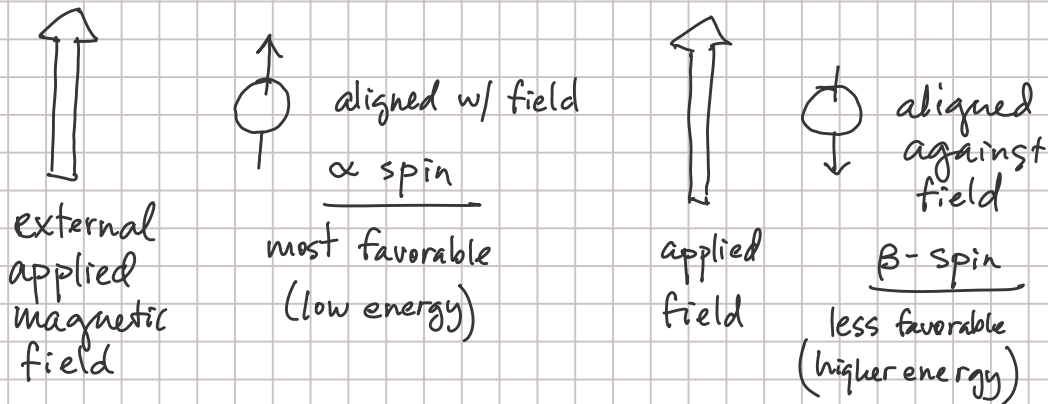 external
applied
magnetic
field
aligned w/ field
α spin
most favorable
(low energy)
applied
field
aligned
against
field
β-spin
less favorable
(higher energy)